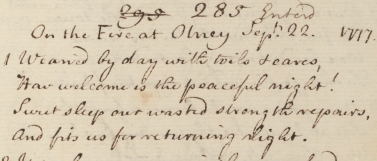 295 285 Enterd
On the Fire at Olney Sepr. 22. 1777.
1 Wearied by day with toils & cares,
How welcome is the peaceful night!
Sweet sleep our wasted strength repairs,
And fits us for returning light.